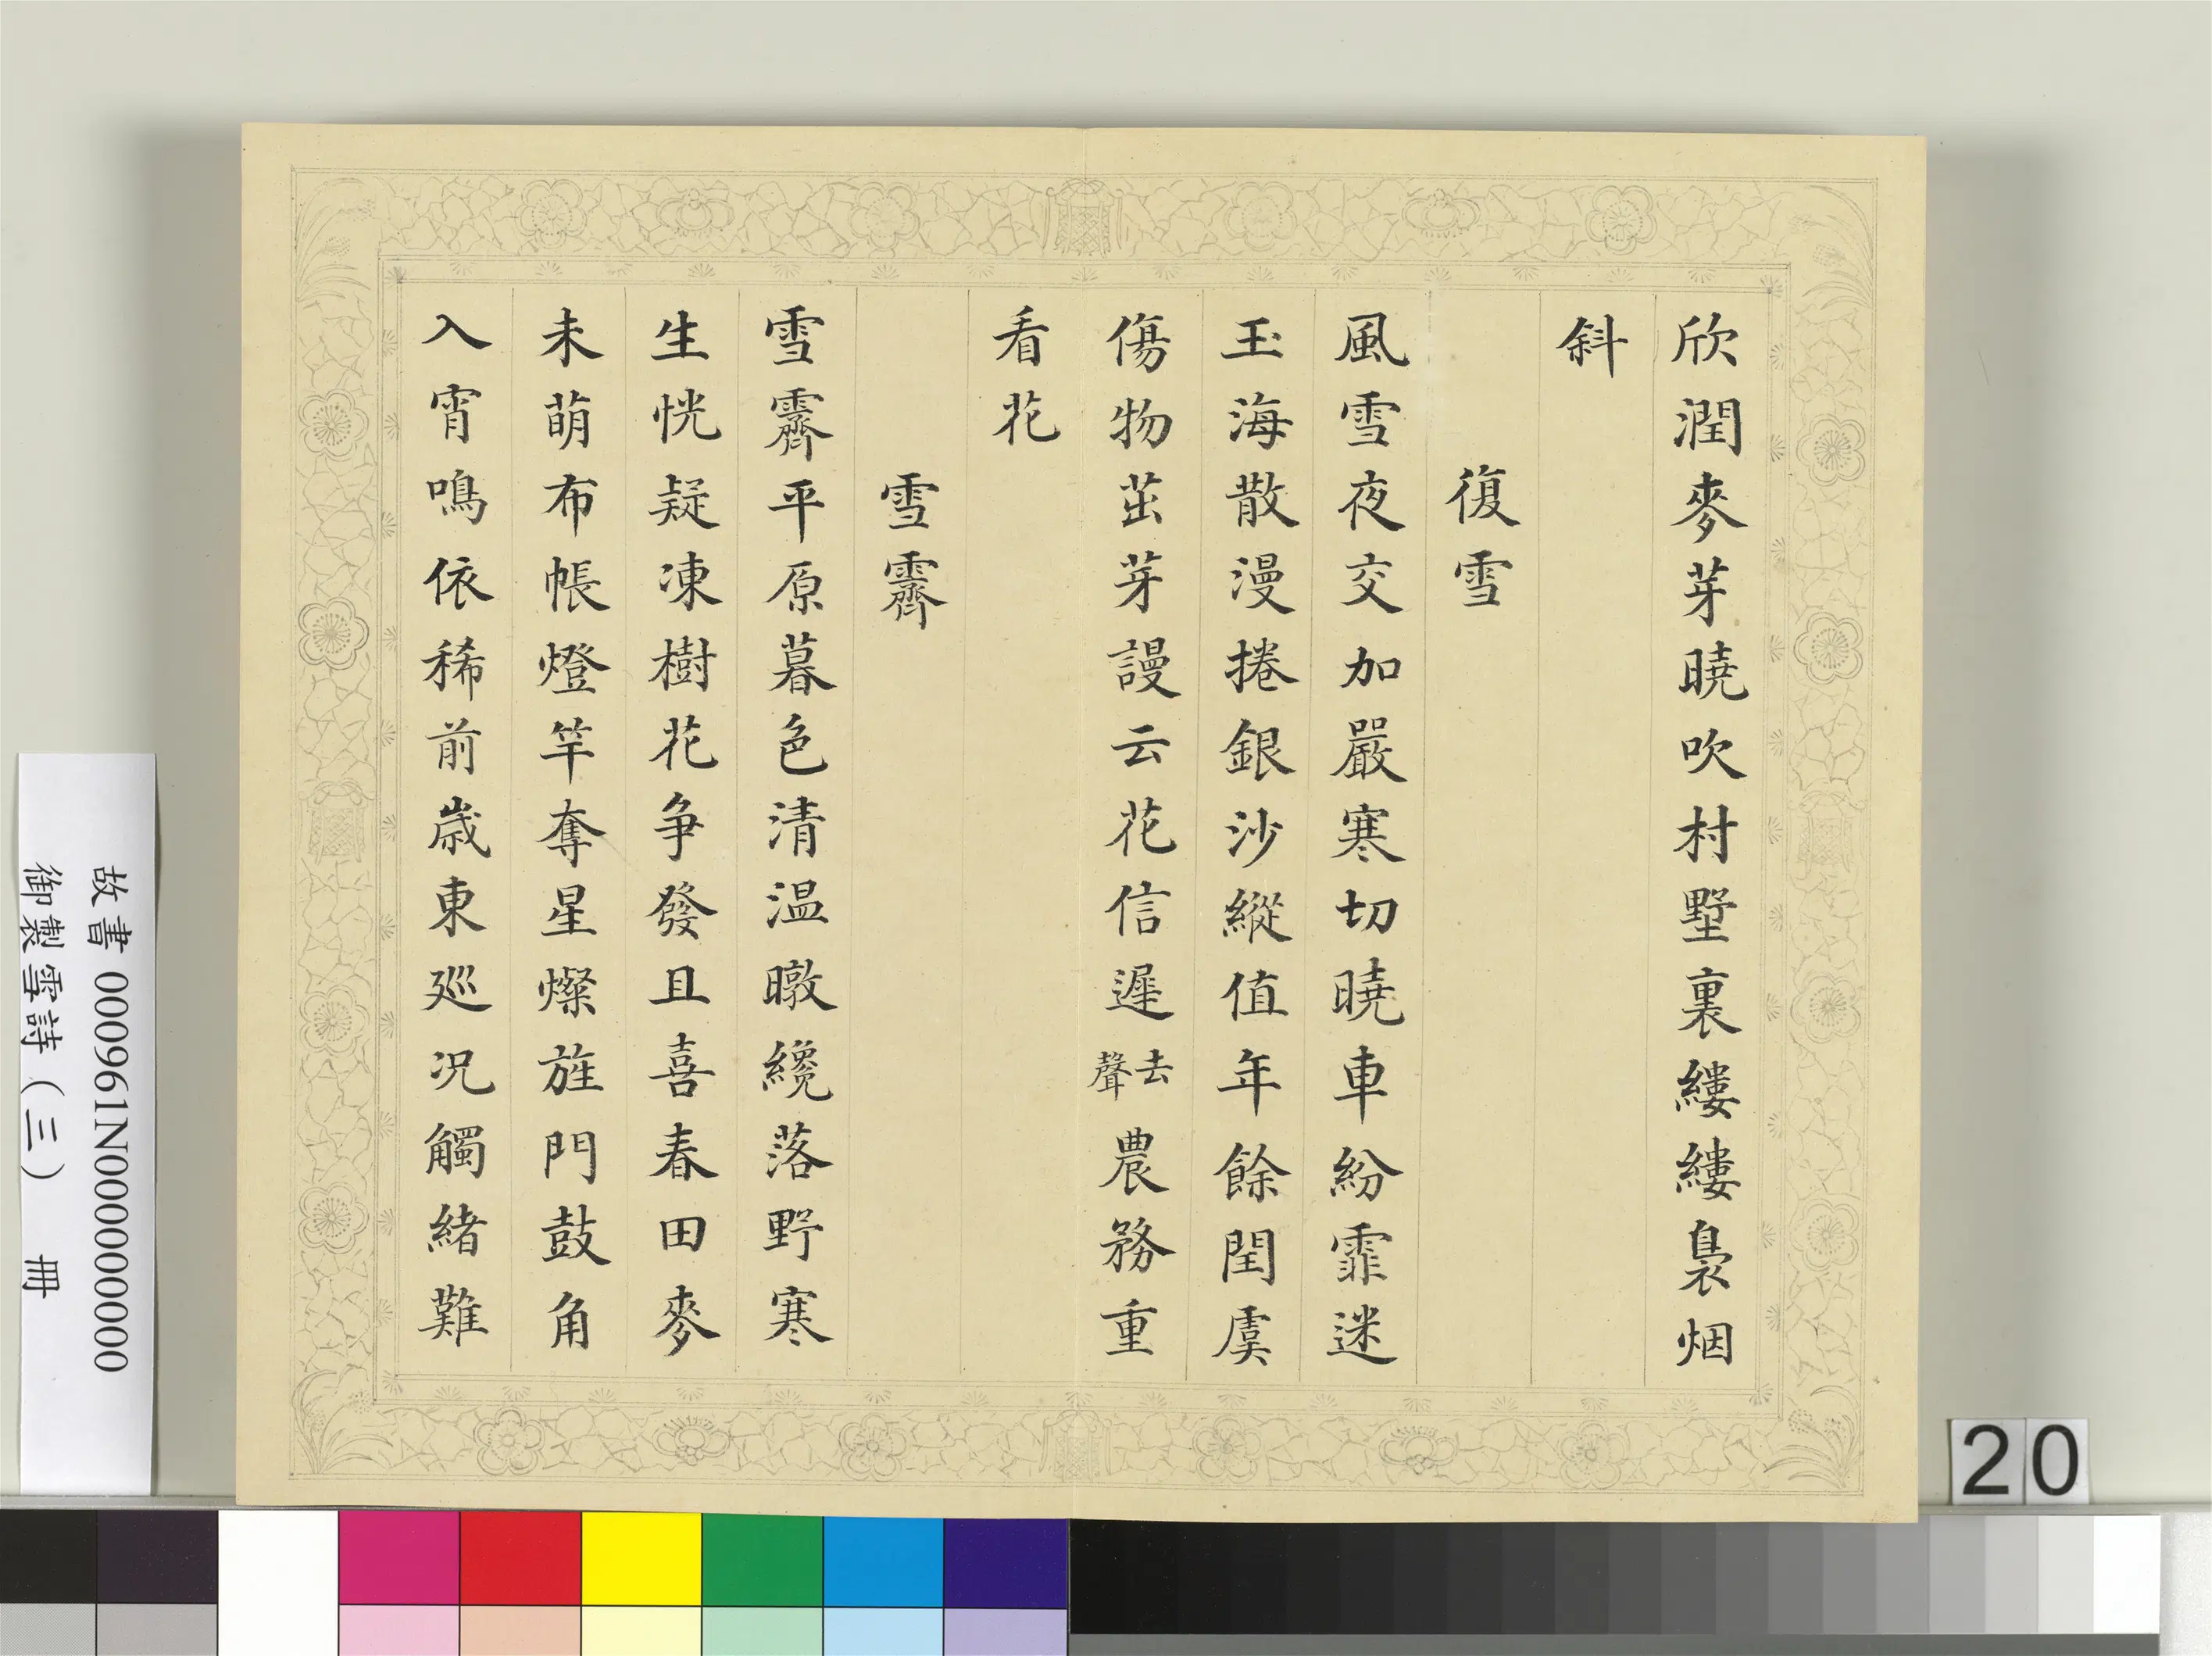 欣潤麥芽曉吹村墅裏縷縷裊烟
斜
復雪
風雪夜交加嚴寒切曉車紛霏迷
玉海散漫捲銀沙縱值年餘閏虞
傷物茁芽謾云花信遲去聲農務重
看花
雪霽
雪霽平原暮色清温暾纔落野寒
生恍疑凍樹花争發且喜春田麥
未萌布帳燈竿奪星燦旌門鼓角
入宵鳴依稀前歲東廵况觸緒難
故書 000961N000000000
御製雪詩（三） 冊
20